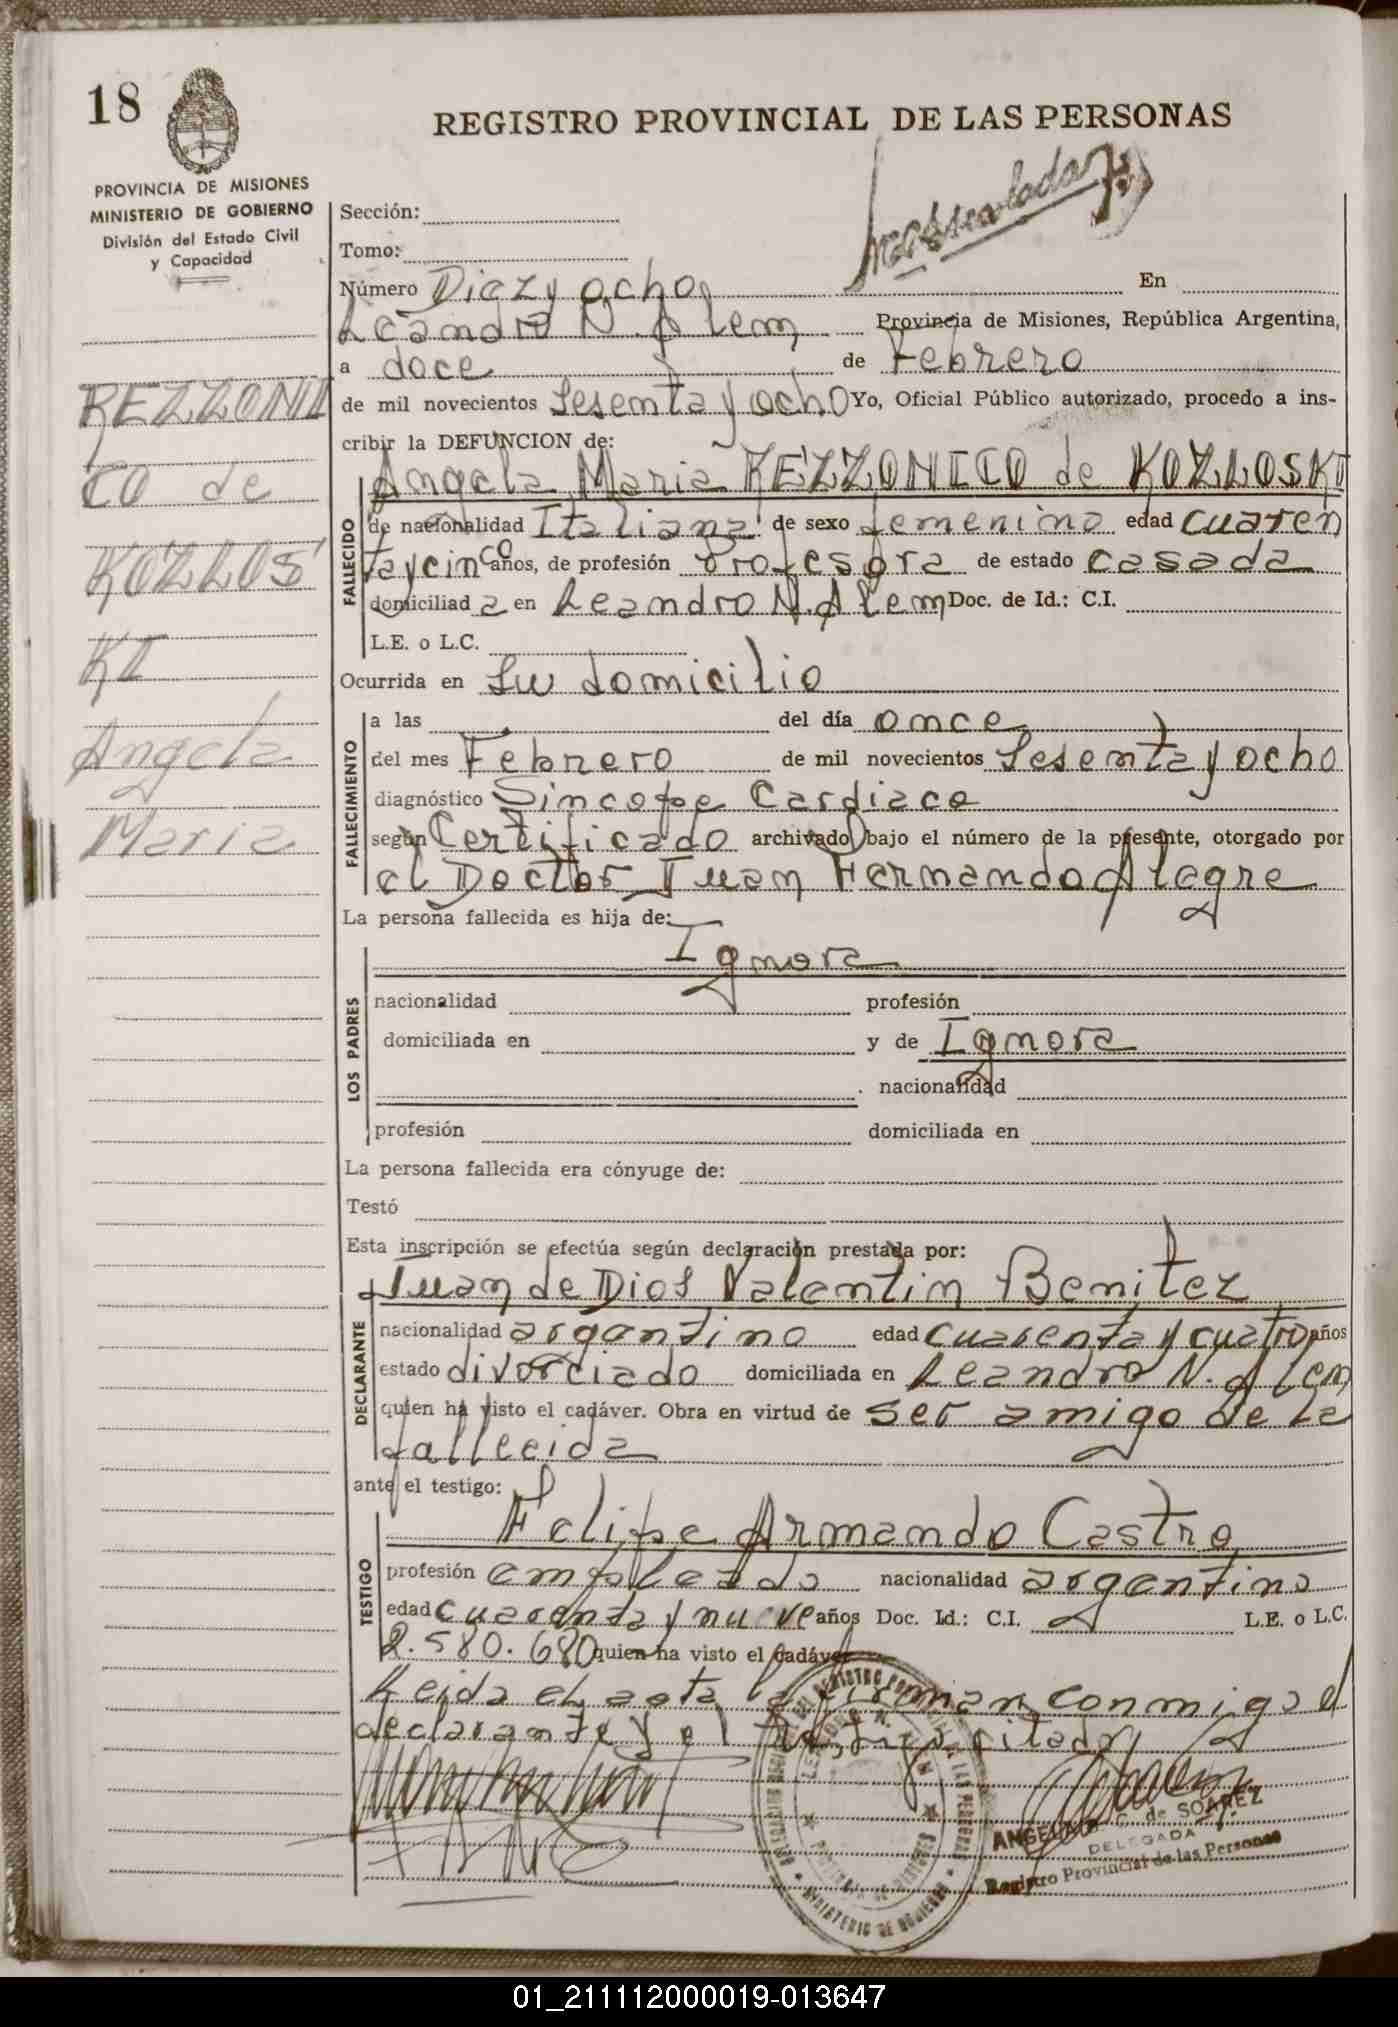 18
REGISTRO PROVINCIAL DE LAS PERSONAS
PROVINCIA DE MISIONES
MINISTERIO DE GOBIERNO
División del Estado Civil
y Capacidad
REZZONI
CO de
KOZLOS
KI
Angela
Maria
Sección:
Tomo:
Número Diez y ocho En
Leandro N. Alem Provincia de Misiones, República Argentina,
a doce de Febrero
de mil novecientos Sesenta y ocho Yo, Oficial Público autorizado, procedo a ins-
cribir la DEFUNCION de:
Angela Maria REZZONICO de KOZLOSKI
FALLECIDO
de nacionalidad Italiana de sexo femenino edad cuaren
taycinco años, de profesión Profesora de estado casada
domiciliada en Leandro N. Alem Doc. de Id.: C.I.
L.E. o L.C.
Ocurrida en Su domicilio
FALLECIMIENTO
a las del día once
del mes Febrero de mil novecientos Sesenta y ocho
diagnóstico Sincope Cardiaco
según Certificado archivado bajo el número de la presente, otorgado por
el Doctor Juan Fernando Alegre
La persona fallecida es hija de:
Ignora
LOS PADRES
nacionalidad profesión
domiciliada en y de Ignora
nacionalidad
profesión domiciliada en
La persona fallecida era cónyuge de:
Testó
Esta inscripción se efectúa según declaración prestada por:
Juan de Dios Valentin Benitez
DECLARANTE
nacionalidad argentino edad cuarenta y cuatro años
estado divorciado domiciliada en Leandro N. Alem
quien ha visto el cadáver. Obra en virtud de ser amigo de la
fallecida
ante el testigo:
Felipe Armando Castro
TESTIGO
profesión empleado nacionalidad argentino
edad cuarenta y nueve años Doc. Id.: C.I. L.E. o L.C.
2.580.680 quien ha visto el cadáver
Leida el acta la firman conmigo el
declarante y el testigo citado
ANGELINA C. de SOAREZ
DELEGADA
Registro Provincial de las Personas
MINISTERIO DE GOBIERNO
01_211112000019-013647